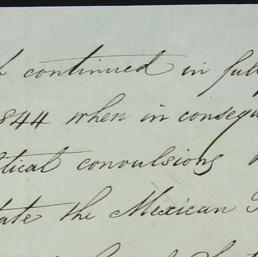 continued in full
1844 when in consequ
tical convulsions
tate the Mexican